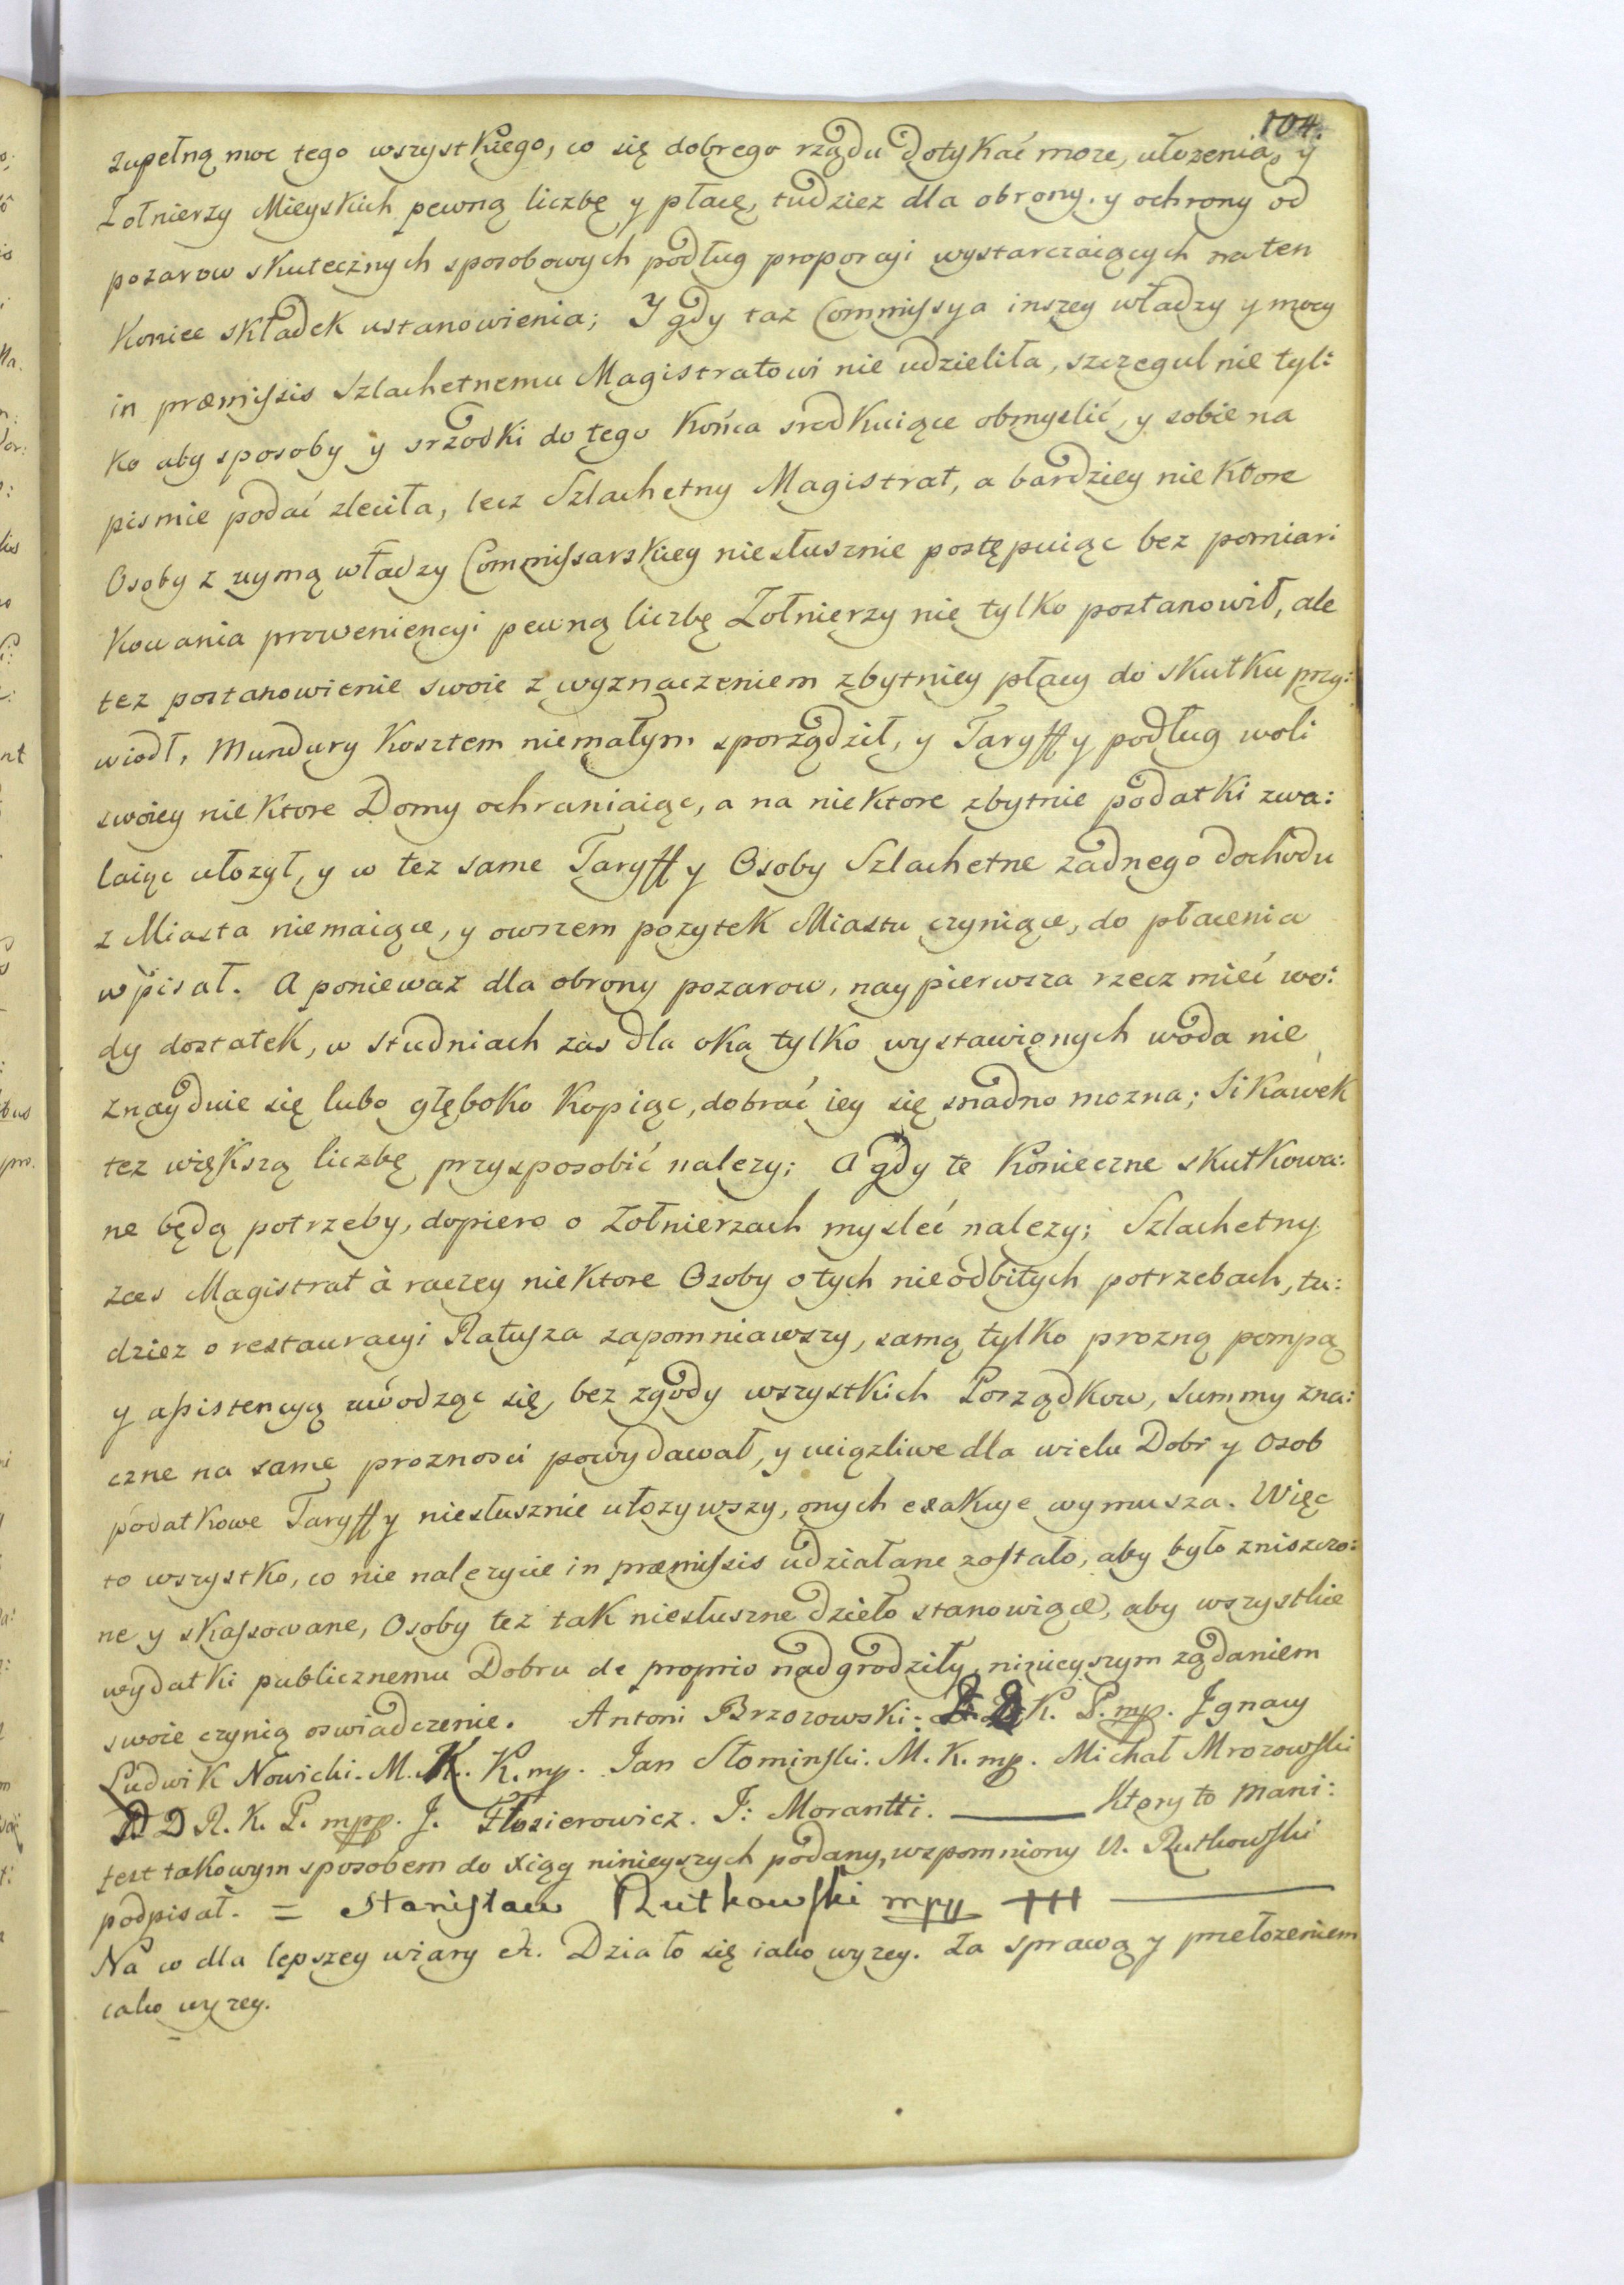 104.
zupełną moc tego wszystkiego, co się dobrego rządu dotykać moze, ułozenia, y
Zołnierzy Mieyskich pewną liczbę y płacę, tudziez dla obrony y ochrony od
pozarow skutecznych sposobowych podług proporcyi wystarczaiących na ten
Koniec składek ustanowienia; Y gdy taz Commissya inszey władzy y mocy
in præmissis Szlachetnemu Magistratowi nie udzieliła, szczegulnie tyl:
ko aby sposoby y srzodki do tego Końca srodkuiące obmyslić, y sobie na
pismie podać zleciła, lecz Szlachetny Magistrat, a bardziey niektore
Osoby z uymą władzy Commissarskiey niesłusznie postępuiąc bez pomiar:
kowania proweniencyi pewną liczbę Zołnierzy nie tylko postanowił, ale
tez postanowienie swoie z wyznaczeniem zbytniey płacy do skutku przy:
wiodł, Mundury Kosztem niemałym sporządził, y Taryffy podług woli
swoiey niektore Domy ochraniaiąc, a na niektore zbytnie podatki zwa:
laiąc ułozył, y w tez same Taryffy Osoby Szlachetne zadnego dochodu
z Miasta niemaiące, y owszem pozytek Miastu czyniące, do płacenia
wpisał. A poniewaz dla obrony pozarow, naypierwsza rzecz mieć wo:
dy dostatek, w studniach zas dla oka tylko wystawionych woda nie
znayduie się lubo głęboko kopiąc, dobrać iey się snadno mozna; Sikawek
tez większą liczbę przysposobić nalezy; A gdy te Konieczne skutkowa:
ne będą potrzeby, dopiero o Zołnierzach mysleć nalezy; Szlachetny
zas Magistrat à raczey niektore Osoby o tych nieodbitych potrzebach, tu:
dziez o restauracyi Ratusza zapomniawszy, samą tylko prozną pompą
y assistencyą uwodząc się, bez zgody wszystkich Porządkow, summy zna:
czne na same prozności powydawał, y uciązliwe dla wielu Dobr y Osob
podatkowe Taryffy niesłusznie ułozywszy, onych exakcye wymusza. Więc
to wszystko, co nie nalezycie in præmissis udziałane zostało, aby było zniszczo:
ne y skassowane, Osoby tez tak niesłuszne dzieło stanowiące, aby wszystkie
wydatki publicznemu Dobru de proprio nadgrodziły, ninieyszym ządaniem
swoie czynią oswiadczenie. Antoni Brzozowski. D. D. K. P. mp. Jgnacy
Ludwik Nowicki. M. K. K. mp. Jan Słominski. M. K. mp. Michał Mrozowski
D D R. K. P. mpp. J. Flosierowicz. J: Morantti. Ktory to Mani:
fest takowym sposobem do xiąg ninieyszych podany, wspomniony U. Rutkowski
podpisał. = Stanisław Rutkowski mpp
Na co dla lepszey wiary etc. Działo się iako wyzey. Za sprawą y przełozeniem
iako wyzey.